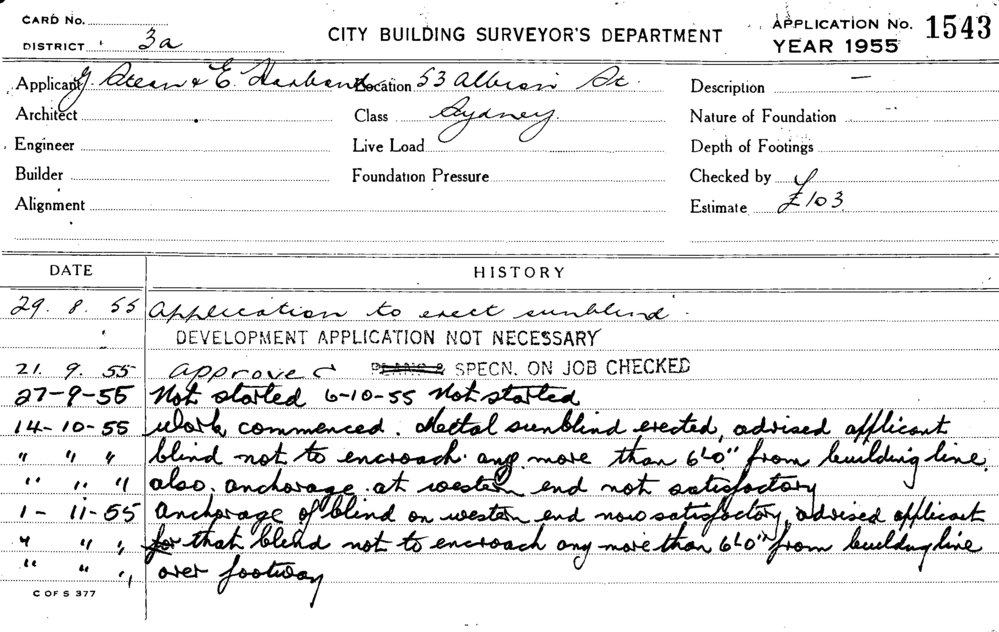 CARD No.
DISTRICT 3a
CITY BUILDING SURVEYOR'S DEPARTMENT
APPLICATION No. 1543
YEAR 1955
Applicant G. Stean & E. Location 53 Albion St. Description —
Architect Class Sydney. Nature of Foundation
Engineer Live Load Depth of Footings
Builder Foundation Pressure Checked by
Alignment Estimate £103
DATE HISTORY
29. 8. 55 Application to erect sunblind.
DEVELOPMENT APPLICATION NOT NECESSARY
21. 9. 55 approved PLANS & SPECN. ON JOB CHECKED
27-9-55 Not started 6-10-55 Not started
14-10-55 Work commenced. Metal sunblind erected, advised applicant
" " " blind not to encroach any more than 6'0" from building line
" " " also anchorage at western end not satisfactory
1-11-55 anchorage of blind on western end now satisfactory, advised applicant
" " " for that blind not to encroach any more than 6'0" from building line
" " " over footway
C OF S 377